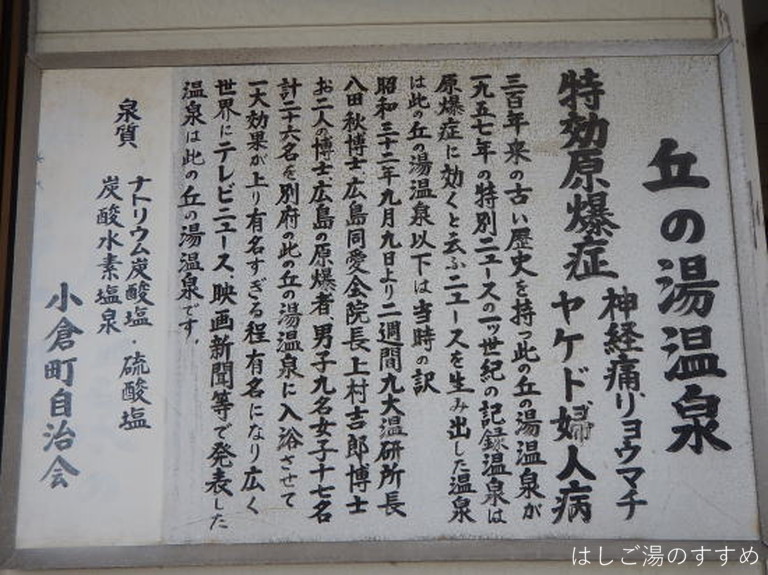 丘の湯温泉
特効原爆症
神経痛リョウマチ
ヤケド婦人病
三百年来の古い歴史を持つ此の丘の湯温泉が
一九五七年の特別ニュースの一ッ世紀の記録温泉は
原爆症に効くと云ふニュースを生み出した温泉
は此の丘の湯温泉以下は当時の訳
昭和三十二年九月九日より二週間九大温研所長
八田秋博士広島同愛会院長上村吉郎博士
お二人の博士広島の原爆者男子九名女子十七名
計二十六名を別府の此の丘の湯温泉に入浴させて
一大効果が上り有名すぎる程有名になり広く
世界にテレビニュース、映画新聞等で発表した
温泉は此の丘の湯温泉です。
泉質
ナトリウム炭酸塩・硫酸塩
炭酸水素塩泉
小倉町自治会
はしご湯のすすめ